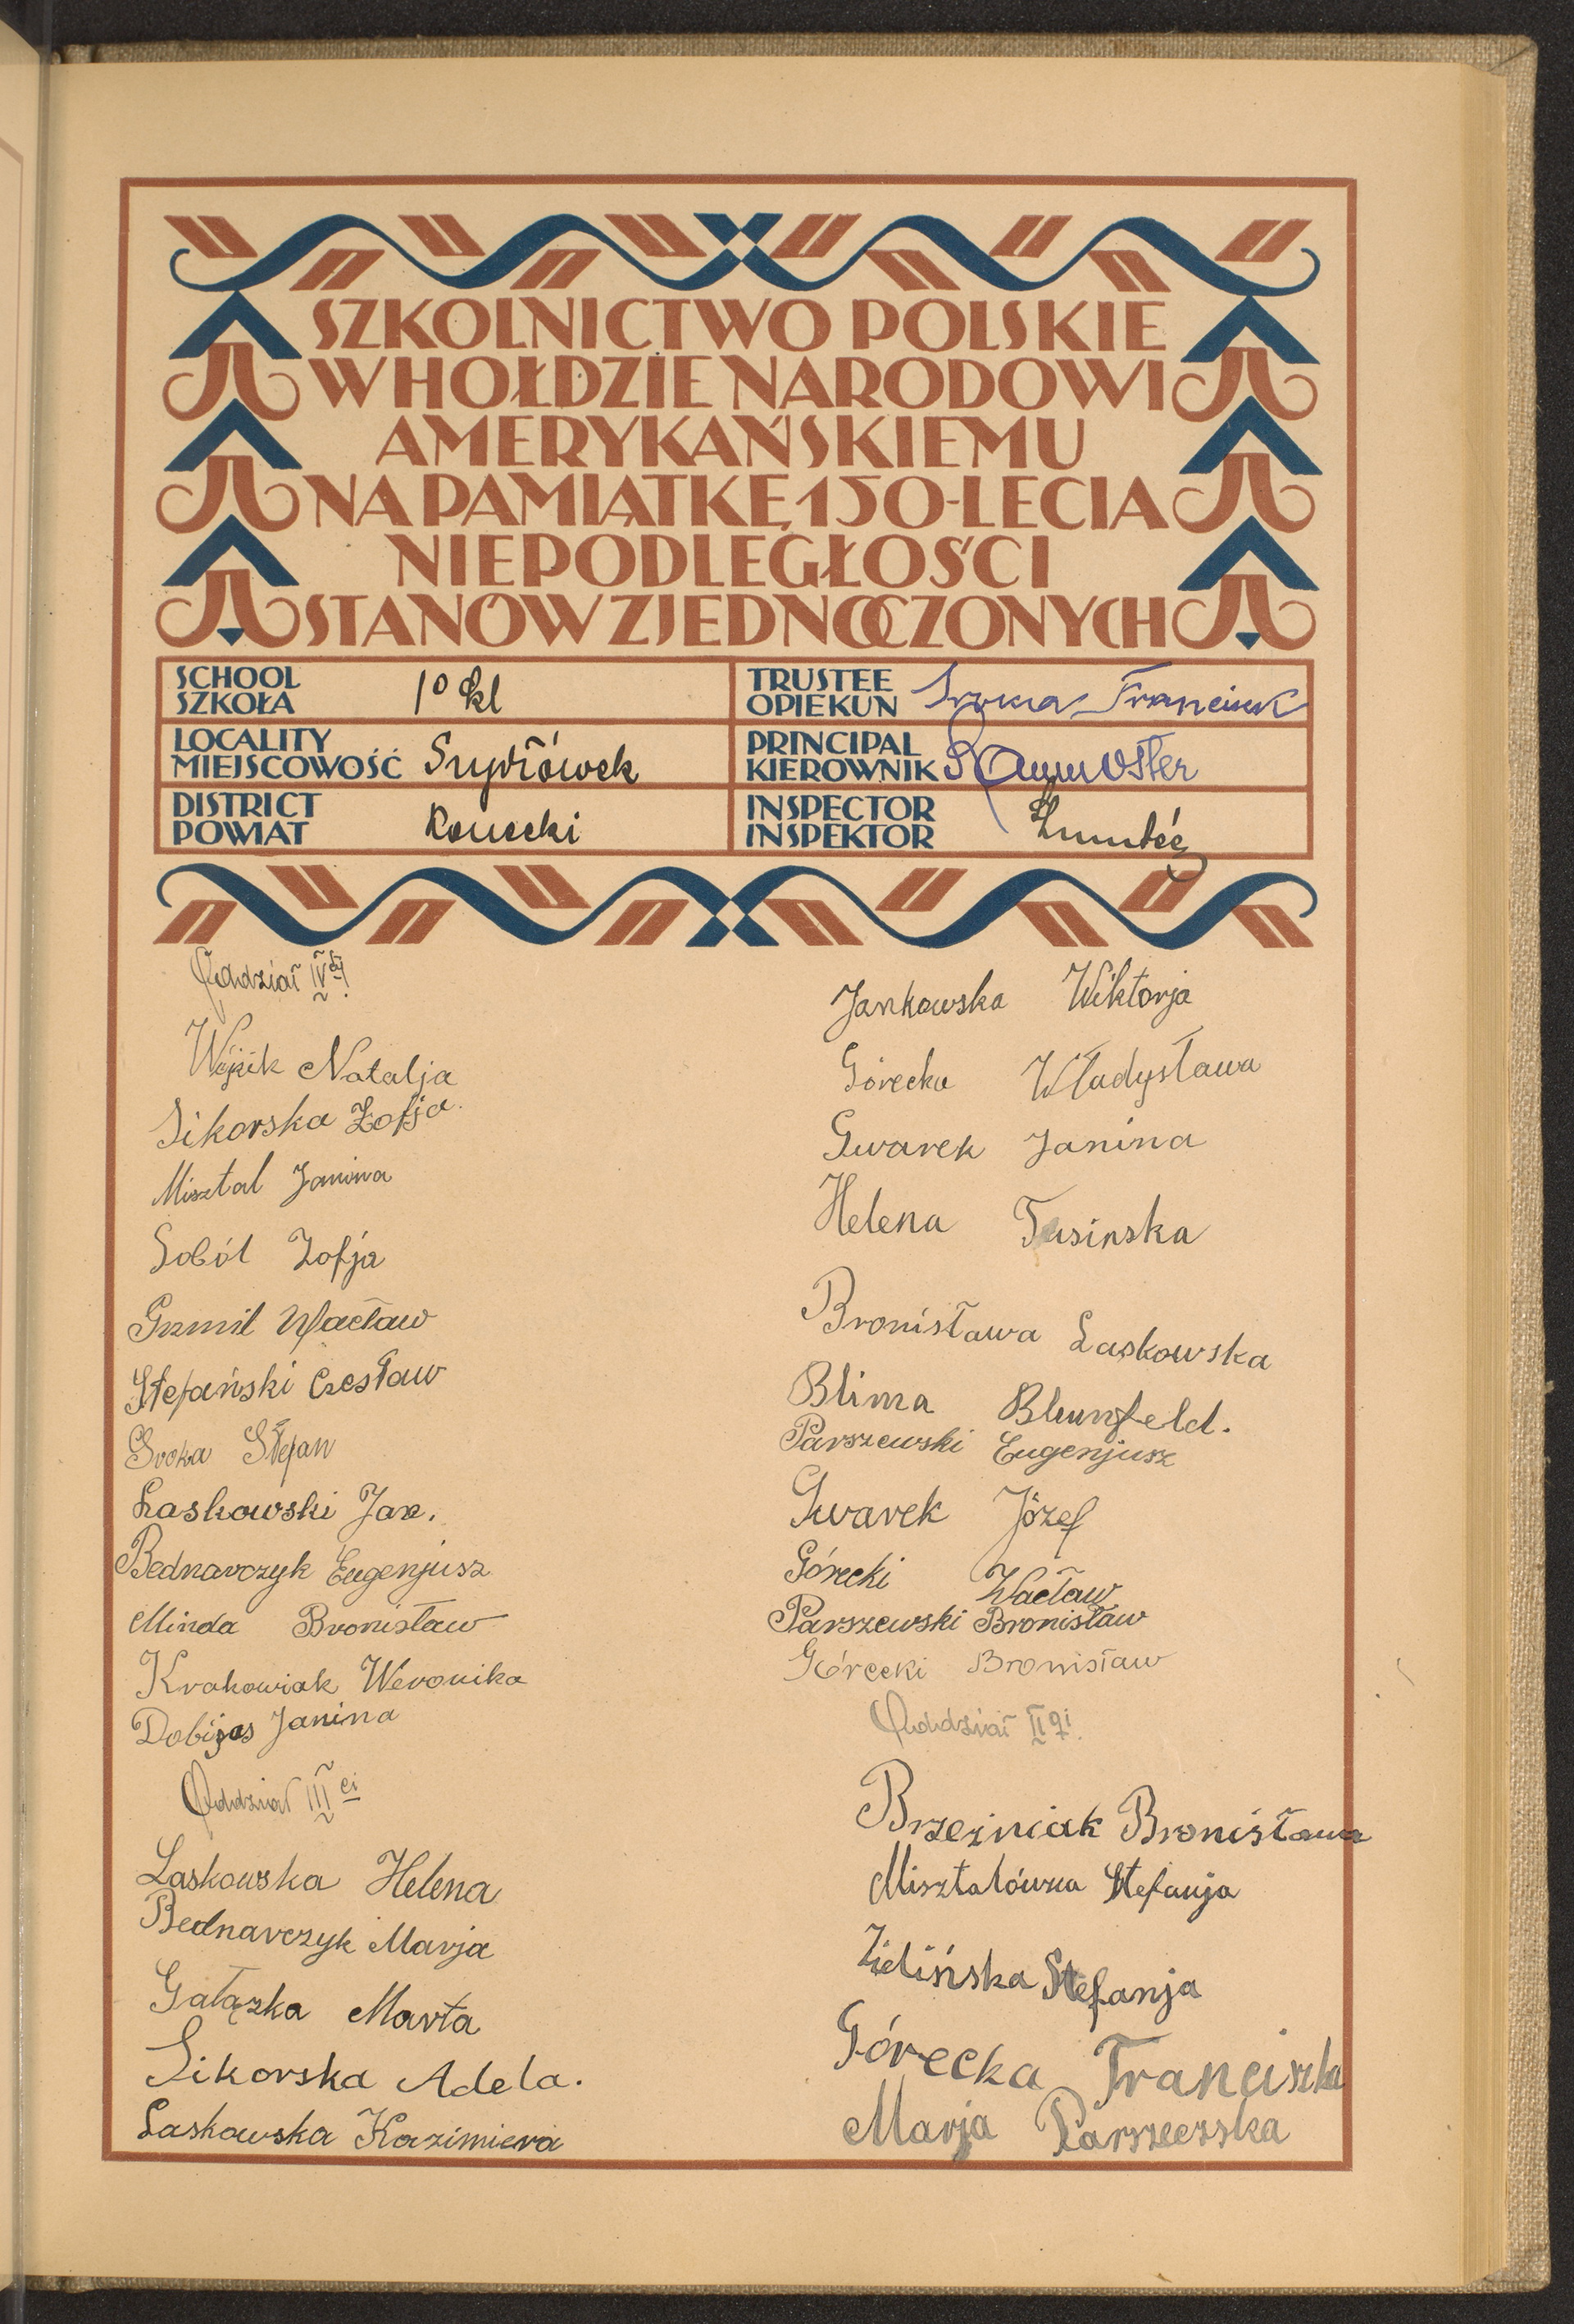 SZKOLNICTWO POLSKIE
W HOŁDZIE NARODOWI
AMERYKAŃSKIEMU
NA PAMIĄTKĘ 150-LECIA
NIEPODLEGŁOŚCI
STANÓW ZJEDNOCZONYCH
SCHOOL
SZKOŁA 1º kl
TRUSTEE
OPIEKUN Franciszek
LOCALITY
MIEJSCOWOŚĆ Szydłówek
PRINCIPAL
KIEROWNIK
DISTRICT
POWIAT Konecki
INSPECTOR
INSPEKTOR
Oddział IV ty
Wójcik Natalja
Sikorska Zofja
Misztal Janina
Soból Zofja
Gzmil Wacław
Stefański Czesław
Sroka Stefan
Laskowski Jan.
Bednarczyk Eugenjusz
Minda Bronisław
Krakowiak Weronika
Dobijas Janina
Oddział III ci
Laskowska Helena
Bednarczyk Marja
Gałązka Marta
Sikorska Adela.
Laskowska Kazimiera
Jankowska Wiktorja
Górecka Władysława
Gwarek Janina
Helena Tusinska
Bronisława Laskowska
Blima Blumfeld.
Parszewski Eugenjusz
Gwarek Józef
Górecki Wacław
Parszewski Bronisław
Górecki Bronisław
Oddział II gi.
Brzeźniak Bronisława
Misztalówna Stefanja
Zielińska Stefanja
Górecka Franciszka
Marja Parszeczska